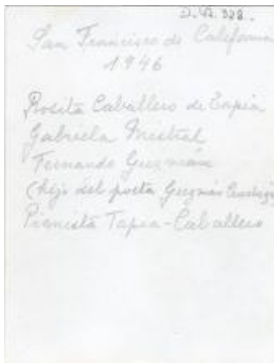 D.VI. 328.
San Francisco de California
1946
Rosita Caballero de Tapia
Gabriela Mistral
Fernando Guzmán
(hijo del poeta Guzmán Cruchaga)
Pianista Tapia-Caballero